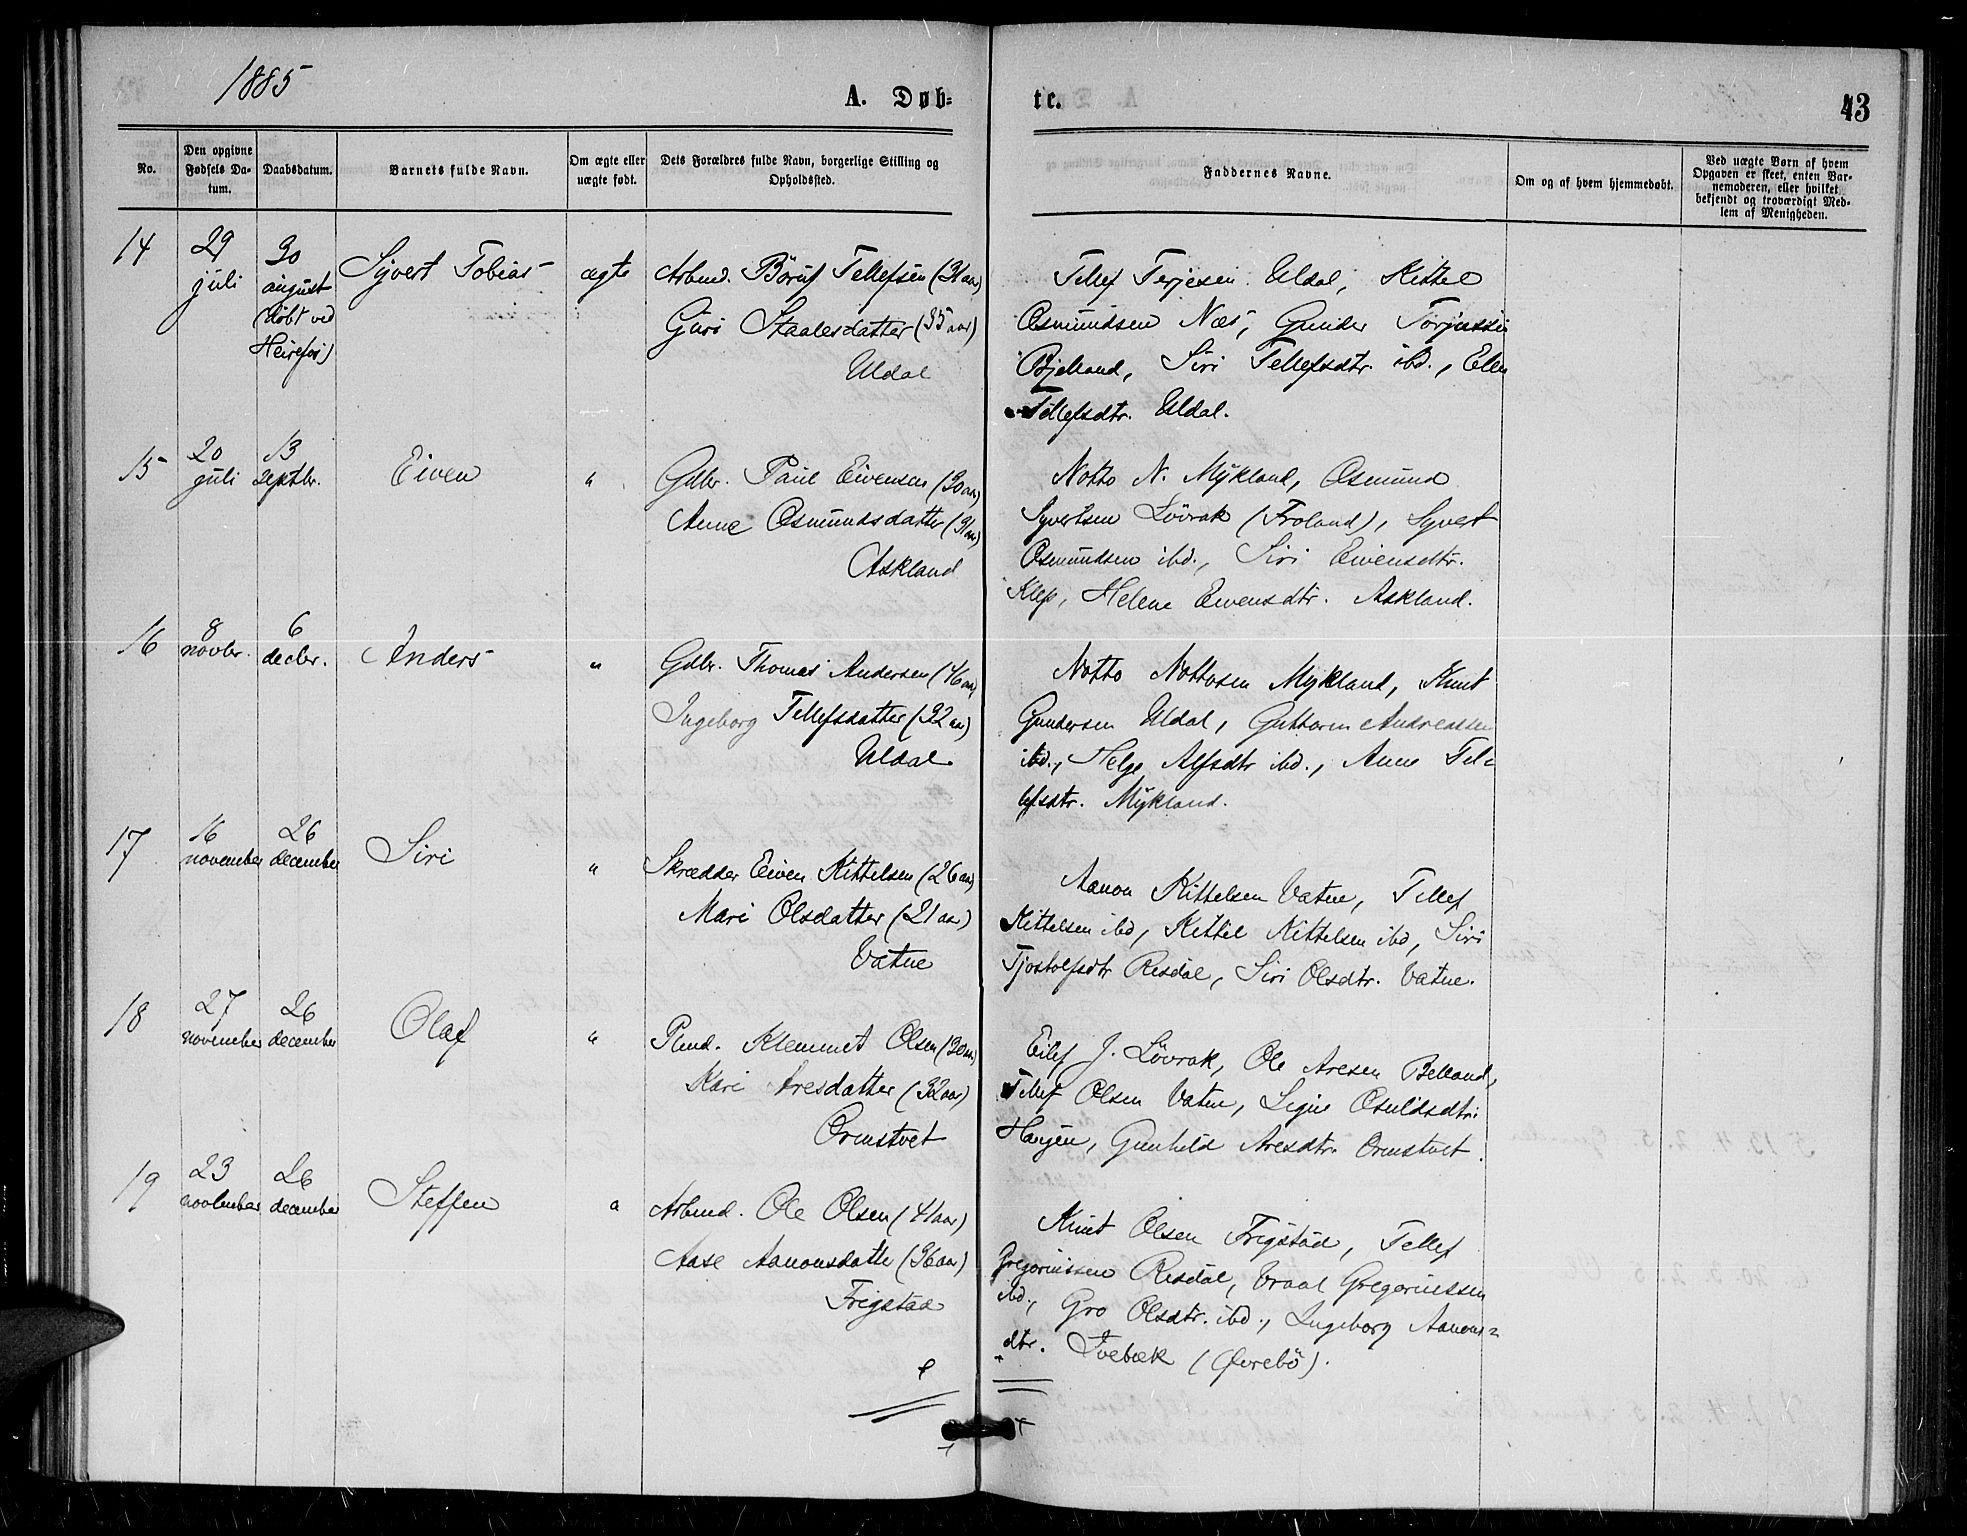 1885
A. Døb-
te.
43
No.
Den opgivne Fødsels Datum.
Daabsdatum.
Barnets fulde Navn.
Om ægte eller uægte født.
Dets Forældres fulde Navn, borgerlige Stilling og Opholdssted.
Faddernes Navne.
Om og af hvem hjemmedøbt.
Ved uægte Børn af hvem Opgaven er skeet, enten Barnemoderen, eller hvilket bekjendt og troværdigt Medlem af Menigheden.
14
29 juli
30 august (døbt ved Heirefos)
Syvert Tobias
ægte
Arbmd. Börüf Tellefsen (31 aar)
Guri Staalesdatter (35 aar)
Uldal
Tellef Terjesen Uldal, Kittel
Osmundsen Næs, Gunder Torjussen
Bjelland, Siri Tellefsdtr. ibd., Ellen
Tellefsdtr. Uldal.
15
20 juli
13 septbr.
Eiven
"
Gdbr. Paul Eivensen (30 aar)
Anne Osmundsdatter (31 aar)
Askland
Notto N. Mykland, Osmund
Syvertsen Lövrak (Froland), Syvert
Osmundsen ibd., Siri Eivensdtr.
Klep, Helene Eivensdtr. Askland.
16
8 novbr.
6 decbr.
Anders
"
Gdbr. Thomas Andersen (46 aar)
Ingeborg Tellefsdatter (32 aar)
Uldal
Notto Nottosen Mykland, Knut
Gundersen Uldal, Guttorm Andreassen
ibd., Helge Alfsdtr ibd., Anne Tel-
lefsdtr. Mykland.
17
16 november
26 december
Siri
"
Skrædder Eiven Kittelsen (26 aar)
Mari Olsdatter (21 aar)
Vatne
Aanon Kittelsen Vatne, Tellef
Kittelsen ibd, Kittil Kittelsen ibd, Siri
Tjostolfsdtr Risdal, Siri Olsdtr. Vatne.
18
27 november
26 december
Olaf
"
Plmd. Klemmet Olsen (30 aar)
Kari Aresdatter (32 aar)
Ormstvet
Eilef J. Lövrak, Ole Aresen Belland,
Tellef Olsen Vatne, Signe Osuldsdtr:
Haugen, Gunhild Aresdtr. Ormstvet.
19
23 november
26 december
Steffen
"
Arbmd. Ole Olsen (41 aar)
Aase Aanonsdatter (36 aar)
Frigstad
Knut Olsen Frigstad, Tellef
Gregoriussen Risdal, Vraal Gregoriussen
ibd., Gro Olsdtr. ibd., Ingeborg Aanons-
dtr. Ivebæk (Øvrebö).